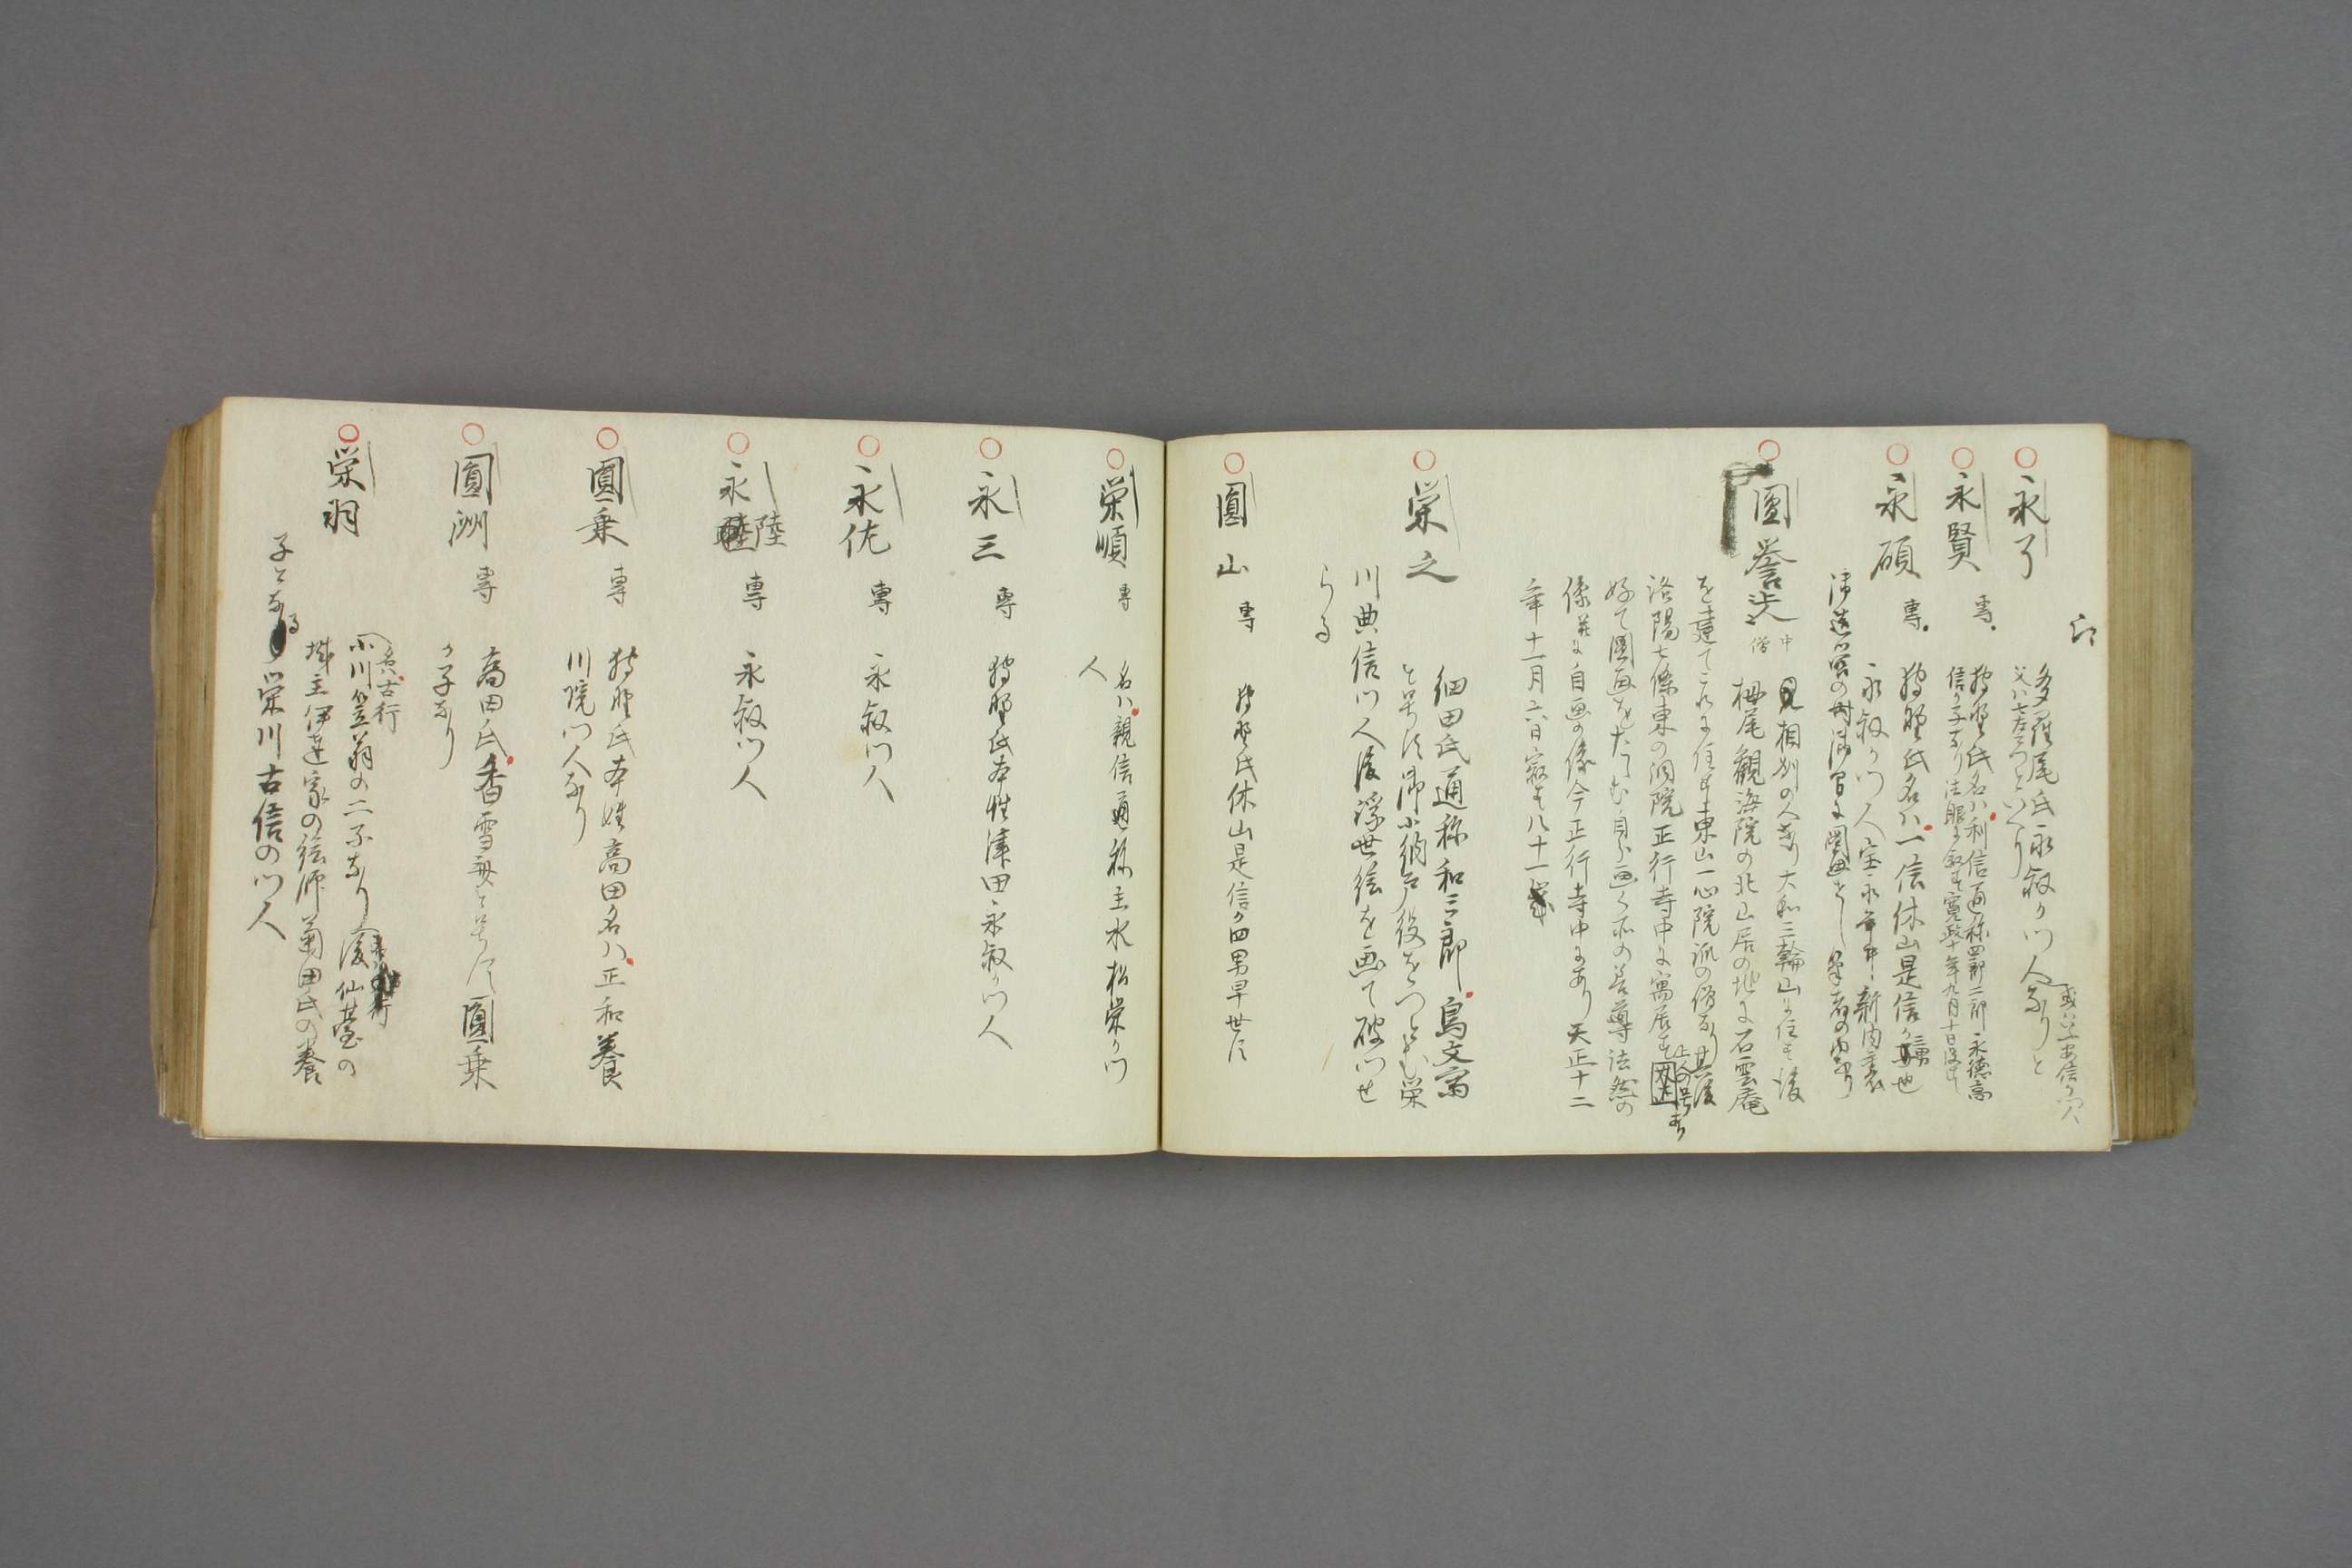 永了
多羅尾氏永叙カ門人なりと
永賢 專
狩野氏名ハ利信通称四郎二郎永徳高
信カ子なり法眼に叙す寛政十年九月十日没す
永碩 專
狩野氏名ハ一信休山是信カ三男也
永叙カ門人宝永年中新内裏
圓誉 中僧
相州の人なり大和三輪山に住す後
栂尾観海院の北山居の地に石雲庵
を建てこれに住す東山一心院派の僧なり其後
洛陽七條東の洞院正行寺中に寓居す
好て圖画をたしむ自ら画く所の善導法然の
像并に自画の像今正行寺中にあり天正十二
年十一月六日寂す八十一歳
栄之
細田氏通称和三郎鳥文斎
と号す御小納戸役をつとむ栄
川典信門人後浮世絵を画て破門せ
らる
圓山 專
狩野氏休山是信カ四男早世す
栄順 專
名ハ親信通称主水松栄カ門
人
永三 專
狩野氏本姓津田永叙カ門人
永佐 專
永叙門人
永陸 專
永叙門人
圓乗 專
狩野氏本姓高田名ハ正和養
川院門人なり
圓洲 專
高田氏香雪齋と号す圓乗
カ子なり
栄羽
名ハ古行
小川笠翁の二子なり後仙臺の
城主伊達家の絵師菊田氏の養
子となる
栄川古信の門人